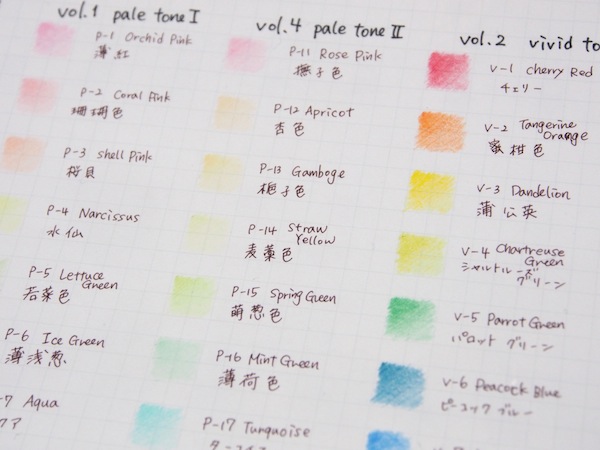 vol.1 pale tone I
P-1 Orchid Pink
薄紅
P-2 Coral Pink
珊瑚色
P-3 Shell Pink
桜貝
P-4 Narcissus
水仙
P-5 Lettuce
Green
若菜色
P-6 Ice Green
薄浅葱
7 Aqua
クア
vol.4 pale tone II
P-11 Rose Pink
撫子色
P-12 Apricot
杏色
P-13 Gamboge
梔子色
P-14 Straw
Yellow
麦藁色
P-15 Spring Green
萌葱色
P-16 Mint Green
薄荷色
P-17 Turquoise
ターコイズ
vol.2 vivid to
V-1 Cherry Red
チェリー
V-2 Tangerine
Orange
蜜柑色
V-3 Dandelion
蒲公英
V-4 Chartreuse
Green
シャルトルーズ
グリーン
V-5 Parrot Green
パロット グリーン
V-6 Peacock Blue
ピーコック ブルー